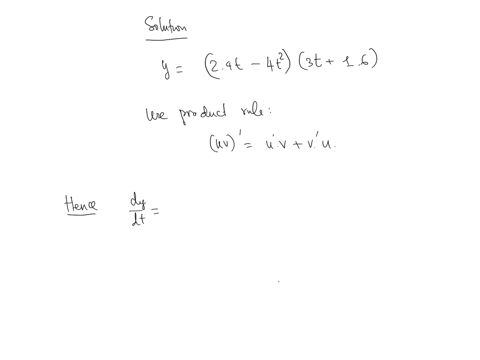 Solution
y = (2.4t - 4t²) (3t + 1.6)
use product rule:
(uv)' = u'v + v'u.
Hence dy/dt =